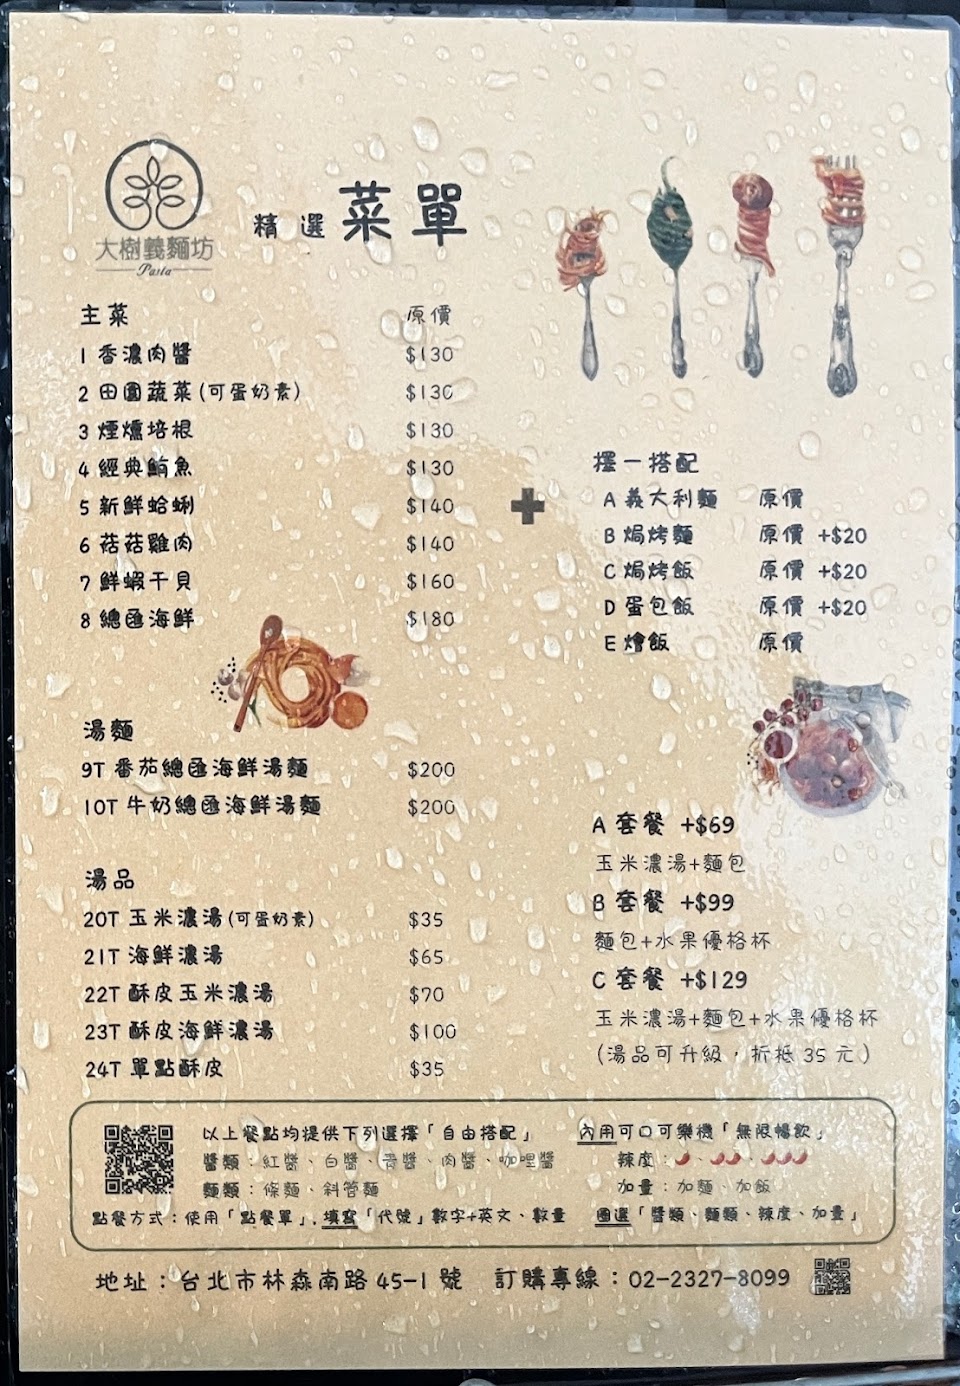 大樹義麵坊
Pasta
精選菜單
主菜 原價
1 香濃肉醬 $130
2 田園蔬菜(可蛋奶素) $130
3 煙燻培根 $130
4 經典鮪魚 $130
5 新鮮蛤蜊 $140
6 菇菇雞肉 $140
7 鮮蝦干貝 $160
8 總匯海鮮 $180
擇一搭配
A 義大利麵 原價
B 焗烤麵 原價 +$20
C 焗烤飯 原價 +$20
D 蛋包飯 原價 +$20
E 燴飯 原價
湯麵
9T 番茄總匯海鮮湯麵 $200
10T 牛奶總匯海鮮湯麵 $200
湯品
20T 玉米濃湯(可蛋奶素) $35
21T 海鮮濃湯 $65
22T 酥皮玉米濃湯 $70
23T 酥皮海鮮濃湯 $100
24T 單點酥皮 $35
A 套餐 +$69
玉米濃湯+麵包
B 套餐 +$99
麵包+水果優格杯
C 套餐 +$129
玉米濃湯+麵包+水果優格杯
(湯品可升級，折抵 35 元)
以上餐點均提供下列選擇「自由搭配」 內用可口可樂機「無限暢飲」
醬類：紅醬、白醬、青醬、肉醬、咖哩醬 辣度：
麵類：條麵、斜管麵 加量：加麵、加飯
點餐方式：使用「點餐單」，填寫「代號」數字+英文、數量 圈選「醬類、麵類、辣度、加量」
地址：台北市林森南路 45-1 號 訂購專線：02-2327-8099